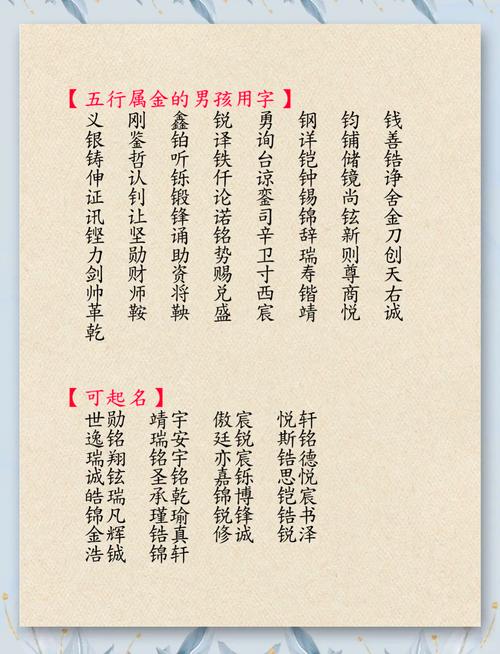 【五行属金的男孩用字】
义 刚 鑫 锐 勇 钢 钧 钱
银 鉴 铂 译 询 详 铺 善
铸 哲 听 铁 台 铠 储 锆
伸 认 铄 仟 谅 钟 镜 诤
证 钊 锻 论 銮 锡 尚 舍
讯 让 锋 诺 司 锦 铉 金
铿 坚 诵 铭 辛 辞 新 刀
力 勋 助 势 卫 瑞 则 创
剑 财 资 赐 寸 寿 尊 天
帅 师 将 兑 西 锴 商 右
革 鞍 鞅 盛 宸 靖 悦 诚
乾
【可起名】
世勋 靖宇 傲宸 悦轩
逸铭 瑞安 廷锐 斯铭
瑞翔 铭宇 亦宸 锆德
诚铉 圣铭 嘉铄 思悦
皓瑞 承乾 锦博 铠宸
锦凡 瑾瑜 锐锋 锆书
金辉 锆真 修诚 锐泽
浩铖 锦轩